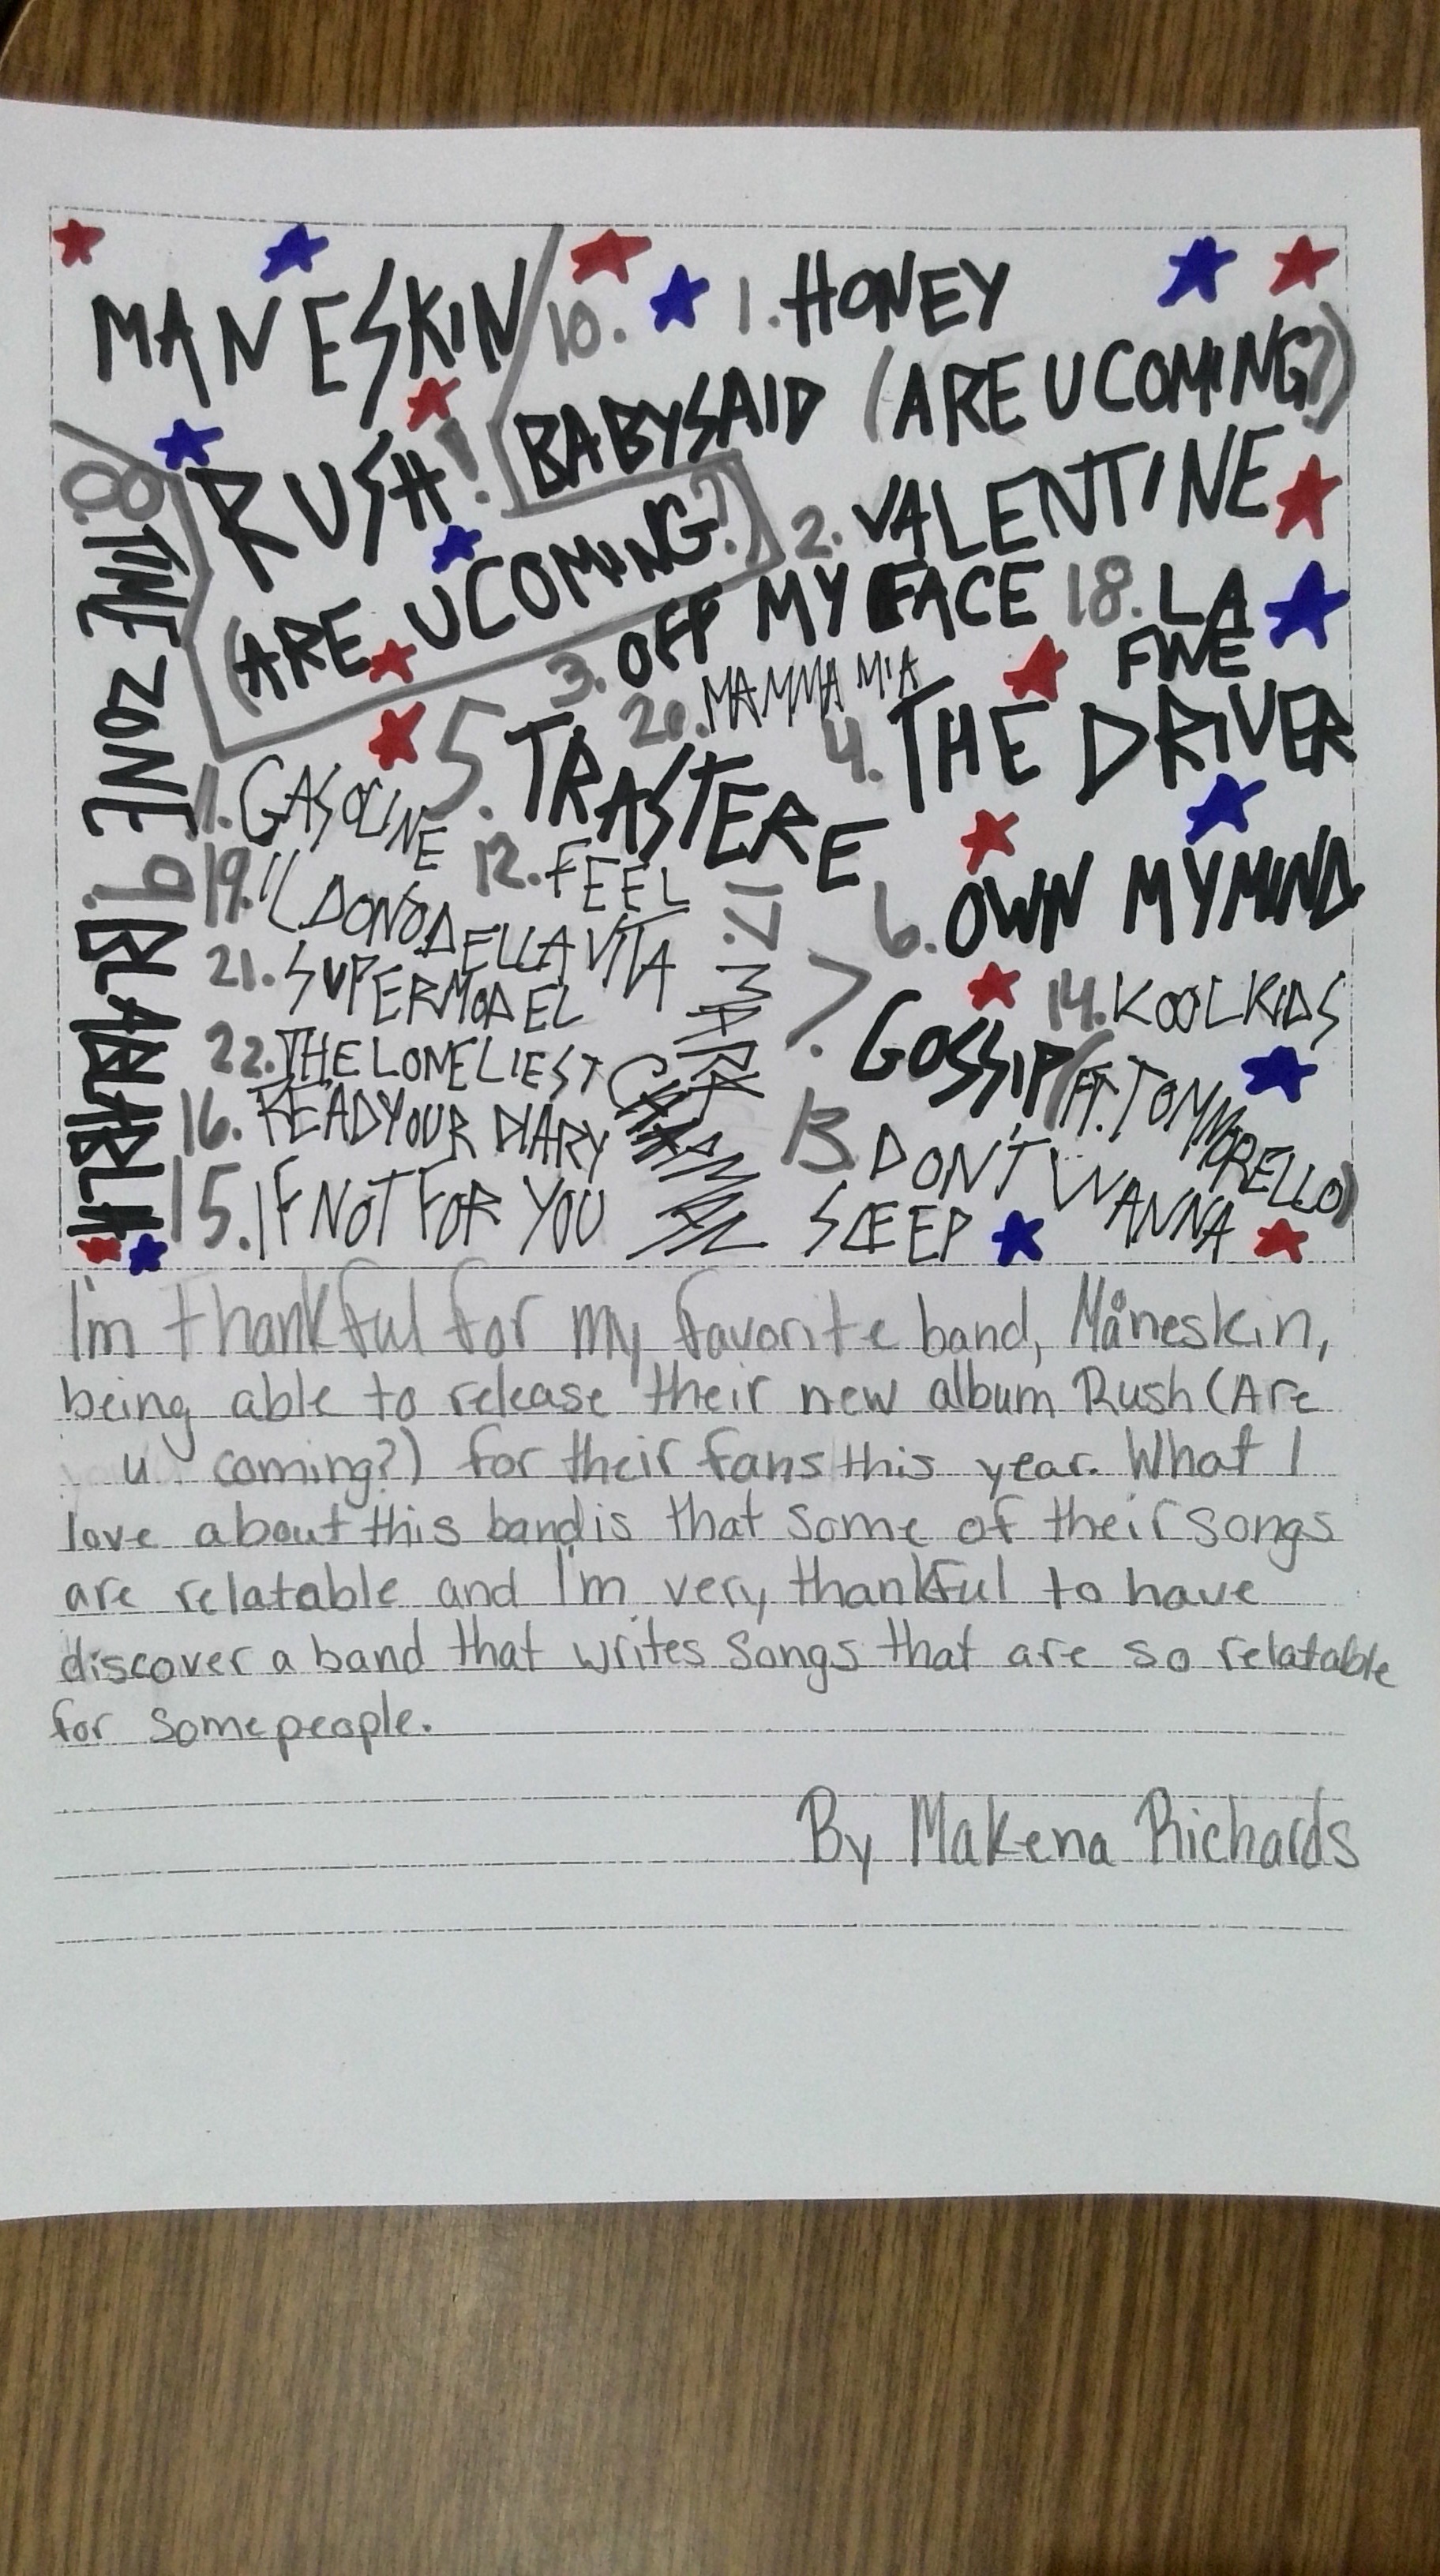 MANESKIN
RUSH!
(ARE U COMING?)
1. HONEY
(ARE U COMING?)
2. VALENTINE
3. OFF MY FACE
4. THE DRIVER
5. TRASTERE
6. OWN MY MIND
7. GOSSIP (FT. TOM MORELLO)
8. TIME ZONE
9. BLA BLA BLA
10. BABY SAID
11. GASOLINE
12. FEEL
13. DON'T WANNA
SLEEP
14. KOOL KIDS
15. IF NOT FOR YOU
16. READ YOUR DIARY
17. MARK
CHAPMAN
18. LA
FINE
19. IL DONO DELLA VITA
20. MAMMAMIA
21. SUPERMODEL
22. THE LONELIEST
I'm thankful for my favorite band, Måneskin,
being able to release their new album Rush (Are
u coming?) for their fans this year. What I
love about this band is that some of their songs
are relatable and I'm very thankful to have
discover a band that writes songs that are so relatable
for some people.
By Makena Richards